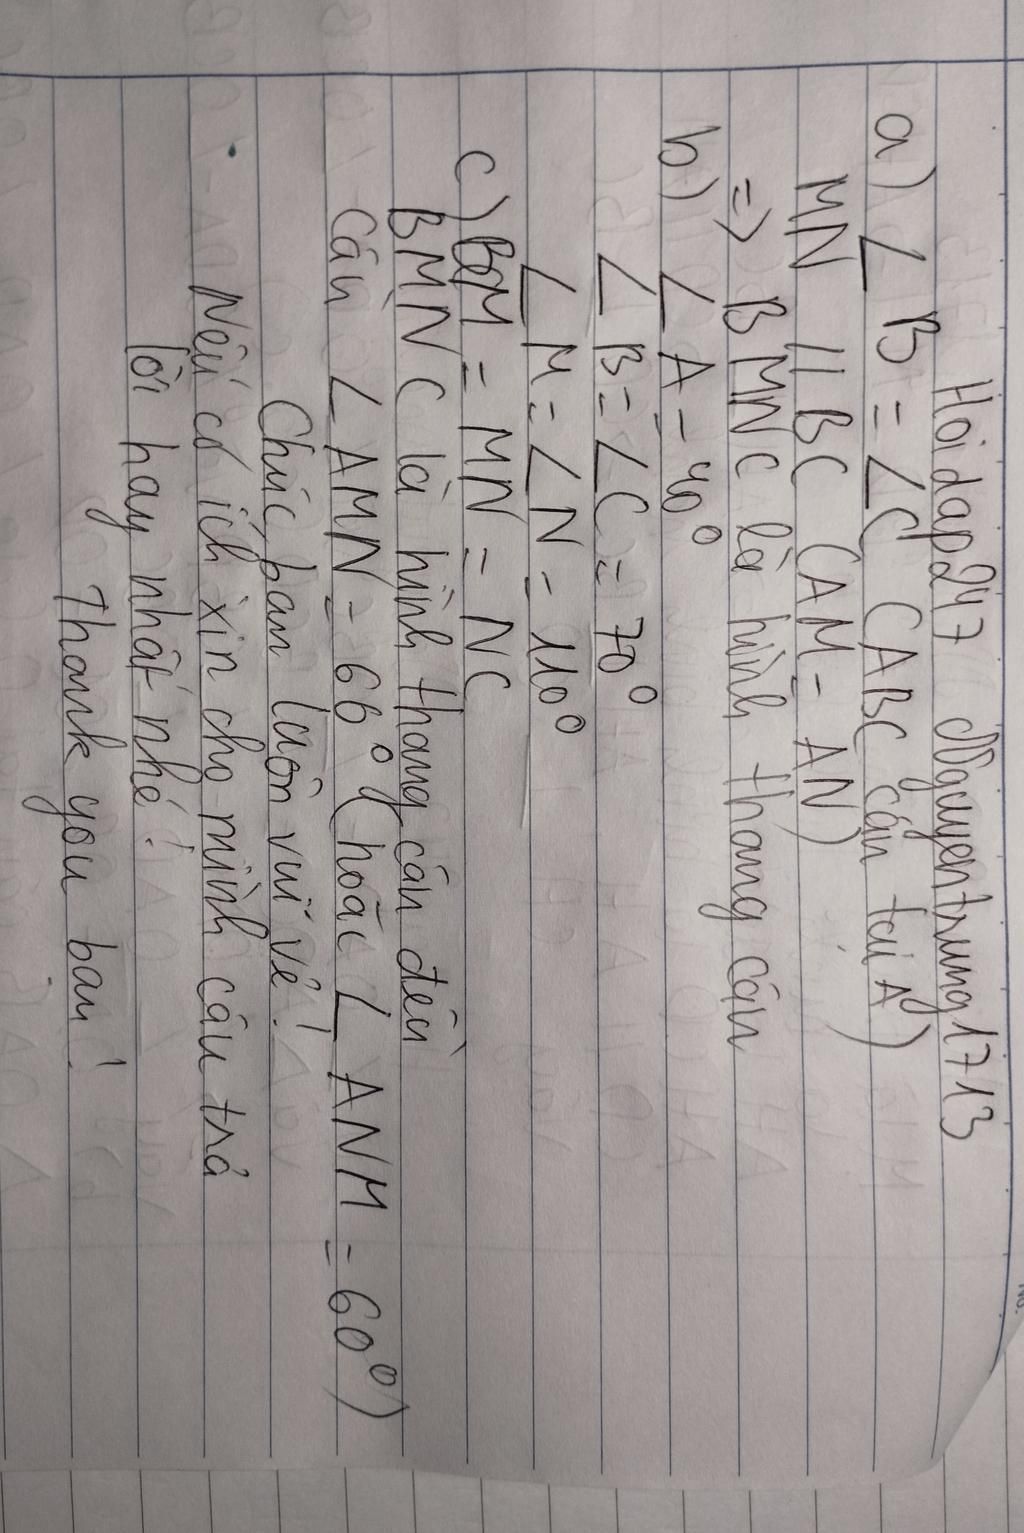 Hoidap247 Nguyentrung1713
a) ∠B = ∠C (ABC cân tại A)
MN // BC (AM = AN)
=> BMNC là hình thang cân
b) ∠A = 40°
∠B = ∠C = 70°
∠M = ∠N = 110°
c) BM = MN = NC
BMNC là hình thang cân đều
Cần ∠AMN = 60° (hoặc ∠ANM = 60°)
Chúc bạn luôn vui vẻ!
Nếu có ích xin cho mình câu trả
lời hay nhất nhé!
Thank you bạn!